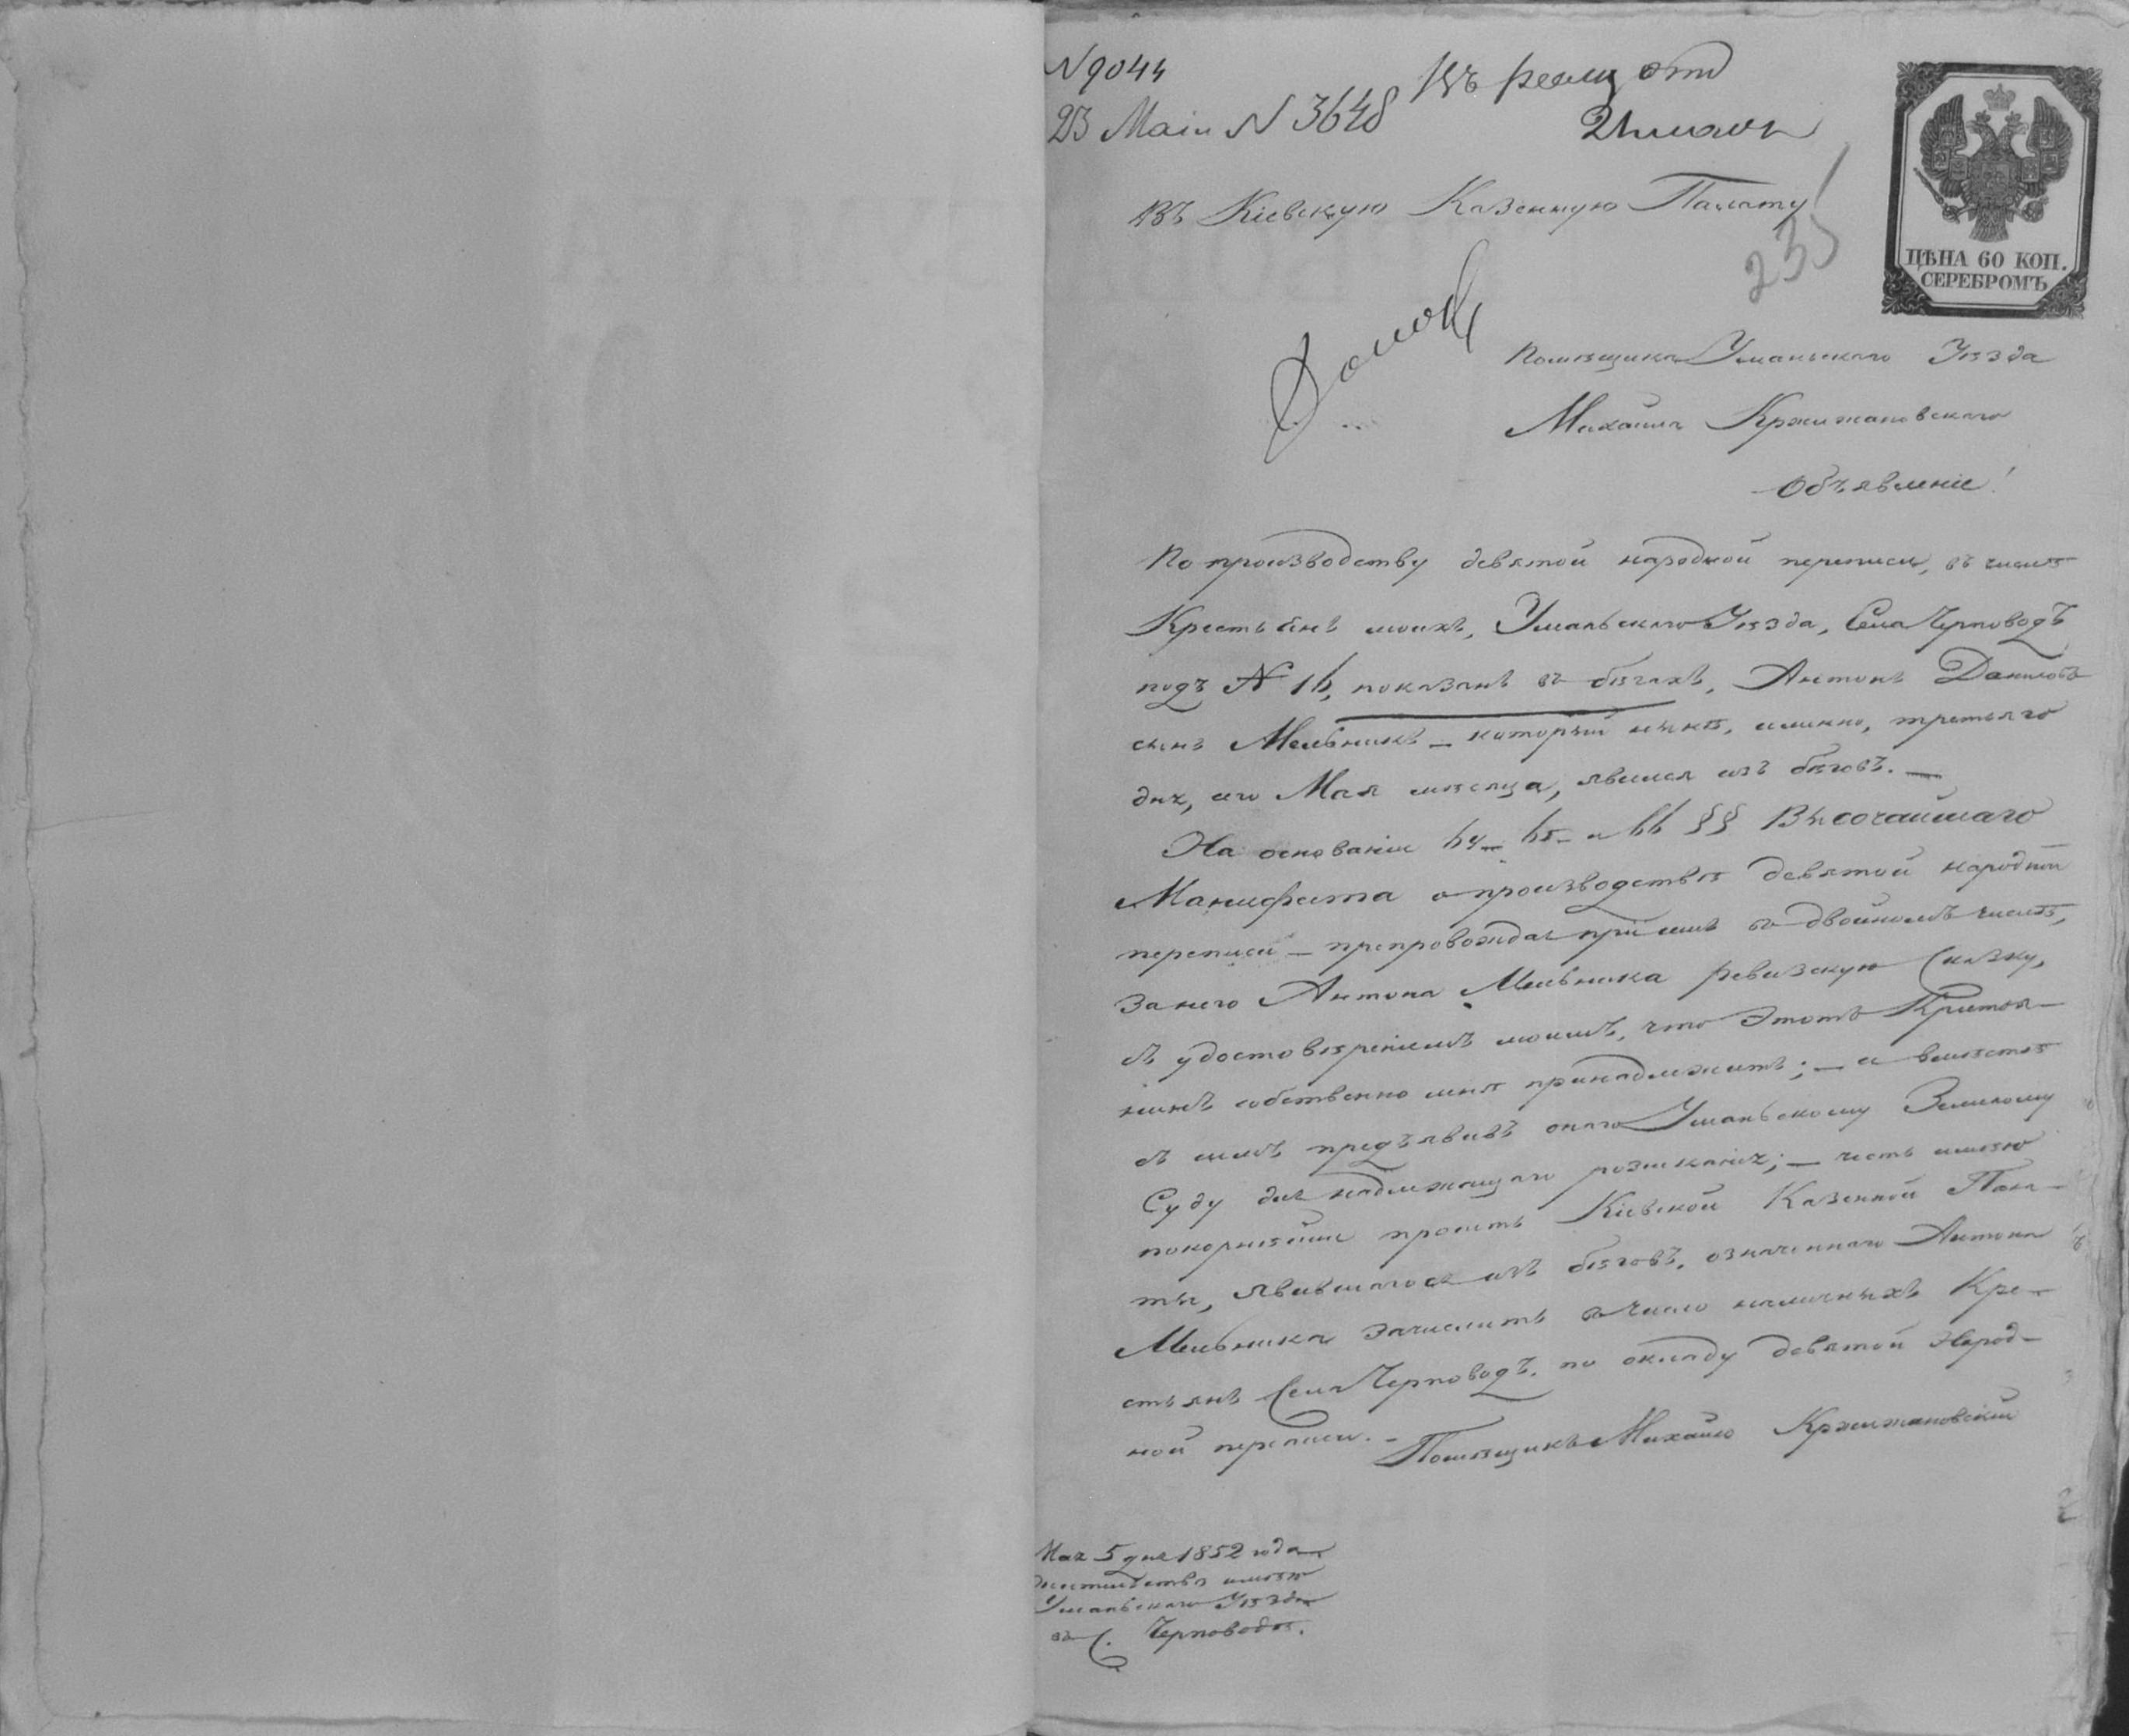 № 9044
23 Маія № 3648
Въ Кіевскую Казенную Палату
235
ЦѢНА 60 КОП.
СЕРЕБРОМЪ
Помѣщика Уманьскаго Уѣзда
Михаила Кржижановскаго
Объявленіе!
По производству девятой народной переписи, въ числѣ
Крестьянъ моихъ, Уманьскаго Уѣзда, Села Черповодъ
подъ № 16, показанъ въ бѣгахъ, Антонъ Даниловъ
сынъ Мельникъ — который нынѣ, именно, третьяго
дня, сего Мая мѣсяца, явился изъ бѣговъ. —
На основаніи 64 — 65 — и 66 §§ Высочайшаго
Манифеста о производствѣ девятой народной
переписи — препровождая при семъ въ двойномъ числѣ,
за него Антона Мельника ревизскую Сказку,
съ удостовѣреніемъ моимъ, что этотъ Крестья-
нинъ собственно мнѣ принадлежитъ; — и вмѣстѣ
съ симъ предъявивъ онаго Уманьскому Земскому
Суду для надлежащаго розысканія; — честь имѣю
покорнѣйше просить Кіевской Казенной Пала-
ты, явившагося изъ бѣговъ, означеннаго Антона
Мельника зачислить въ число наличныхъ Кре-
стьянъ Села Черповодъ, по окладу девятой Народ-
ной переписи. —
Помѣщикъ Михаилъ Кржижановскій
Мая 5 дня 1852 года
жительство имѣю
Уманьскаго Уѣзда
въ С. Черповодѣ.